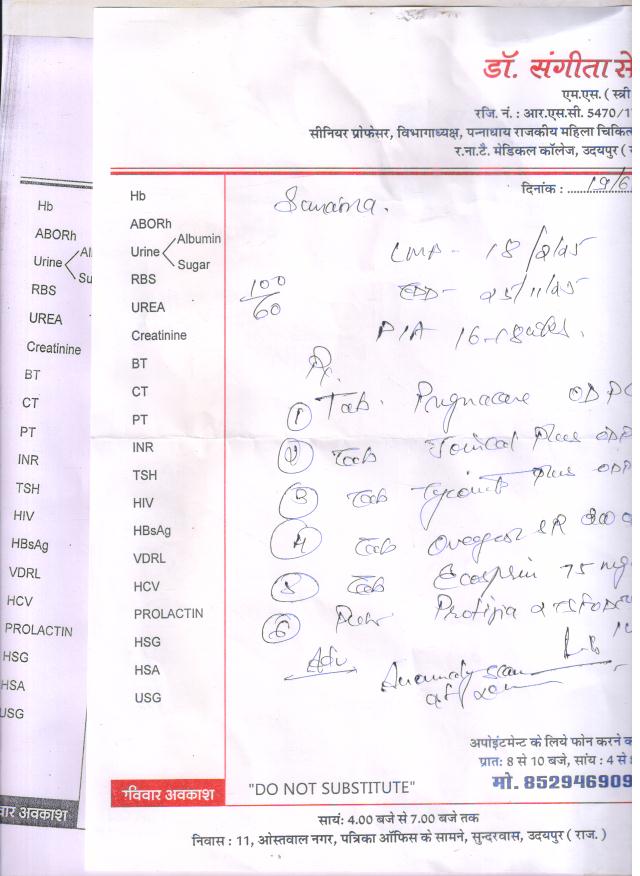 डॉ. संगीता से
एम.एस. ( स्त्री
रजि. नं. : आर.एस.सी. 5470/1
सीनियर प्रोफेसर, विभागाध्यक्ष, पन्नाधाय राजकीय महिला चिकित
र.ना.टै. मेडिकल कॉलेज, उदयपुर (
दिनांक : 19/6
Hb
ABORh
Urine Albumin
Sugar
RBS
UREA
Creatinine
BT
CT
PT
INR
TSH
HIV
HBsAg
VDRL
HCV
PROLACTIN
HSG
HSA
USG
LMP - 18/2/25
100/60
EDD - 25/11/25
P/A 16-18wks.
Rx
① Tab. Pregnacare OD
② Tab Plus
③ Tab Plus
④ Tab SR 300
⑤ Tab Ecosprin 75 mg
⑥
Adv Anomaly scan
अपोइंटमेन्ट के लिये फोन करने क
प्रात: 8 से 10 बजे, सांय: 4 से
मो. 852946909
रविवार अवकाश
"DO NOT SUBSTITUTE"
सायं: 4.00 बजे से 7.00 बजे तक
निवास : 11, ओस्तवाल नगर, पत्रिका ऑफिस के सामने, सुन्दरवास, उदयपुर ( राज. )
Hb
ABORh
Urine Al
Su
RBS
UREA
Creatinine
BT
CT
PT
INR
TSH
HIV
HBsAg
VDRL
HCV
PROLACTIN
HSG
HSA
USG
वार अवकाश